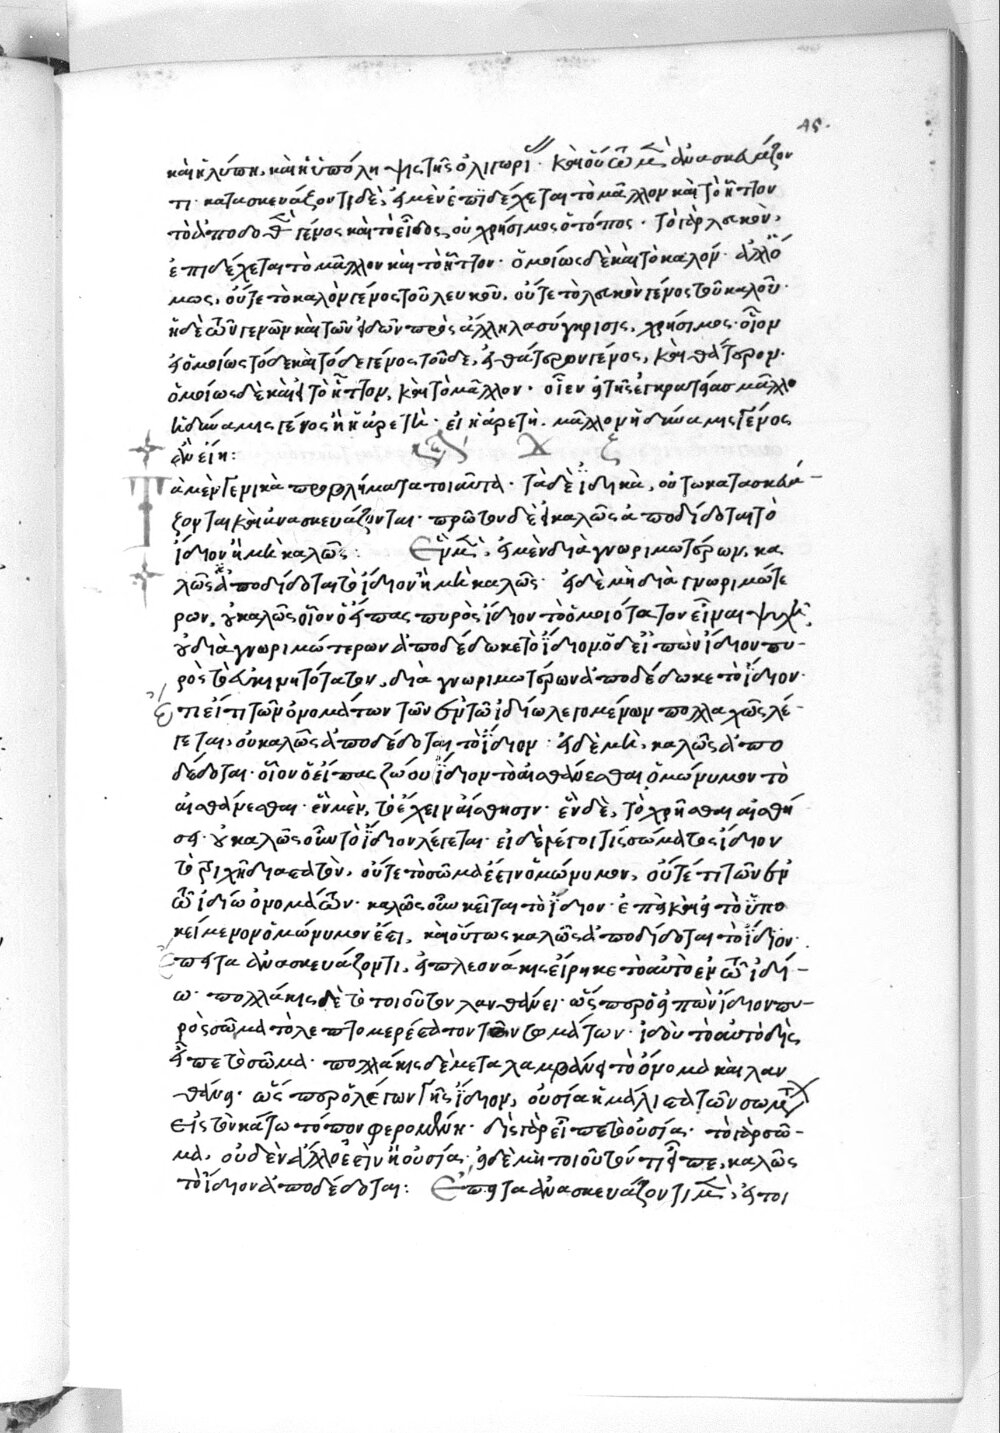 καὶ ἡ λύπη, καὶ ἡ ὑπόληψις τῆς ὀλιγωρί καὶ οὕτω μὲν ἀνασκευάζον
τι· κατασκευάζοντι δὲ, εἰ μὲν ἐπιδέχεται τὸ μᾶλλον καὶ τὸ ἧττον
τὸ ἀποδοθὲν γένος καὶ τὸ εἶδος, οὐ χρήσιμος ὁ τόπος· τὸ γὰρ λευκὸν,
ἐπιδέχεται τὸ μᾶλλον καὶ τὸ ἧττον· ὁμοίως δὲ καὶ τὸ καλόν· ἀλλ' ὅ
μως, οὔτε τὸ καλὸν γένος τοῦ λευκοῦ, οὔτε τὸ λευκὸν γένος τοῦ καλοῦ·
ἡ δὲ τῶν γενῶν καὶ τῶν εἰδῶν πρὸς ἄλληλα σύγκρισις, χρήσιμος· οἷον
εἰ ὁμοίως τόδε καὶ τόδε γένος τοῦδε, εἰ θάτερον γένος, καὶ θάτερον·
ὁμοίως δὲ καὶ εἰ τὸ ἧττον, καὶ τὸ μᾶλλον· οἷον εἰ τῆς ἐγκρατείας μᾶλλο
ἡ δύναμις γένος ἢ ἡ ἀρετὴ· εἰ ἡ ἀρετὴ μᾶλλον ἡ δύναμις γένος
ἂν εἴη:
Τὰ μὲν γενικὰ προβλήματα τοιαῦτα· τὰ δὲ ἰδικὰ, οὕτω κατασκευά-
ζονται καὶ ἀνασκευάζονται· πρῶτον δὲ εἰ καλῶς ἀποδίδοται τὸ
ἴδιον ἢ μὴ καλῶς: εἰ μὲν διὰ γνωριμωτέρων, κα
λῶς ἀποδίδοται τὸ ἴδιον ἢ μὴ καλῶς· εἰ δὲ μὴ διὰ γνωριμωτέ
ρων, οὐ καλῶς οἷον ὁ εἴπας πυρὸς ἴδιον τὸ ὁμοιότατον εἶναι ψυχῆ,
οὐ διὰ γνωριμώτερων ἀποδέδωκε τὸ ἴδιον. ὁ δὲ εἰπὼν ἴδιον πυ-
ρὸς τὸ εὐκινητότατον, διὰ γνωριμωτέρων ἀποδέδωκε τὸ ἴδιον·
Ἔπι εἴ τι τῶν ὀνομάτων τῶν ἐν τῷ ἰδίῳ λεγομένων πολλαχῶς λέ-
γεται, οὐ καλῶς ἀποδέδοται τὸ ἴδιον· εἰ δὲ μὴ, καλῶς ἀπο
δέδοται· οἷον ὁ εἴπας ζῴου ἴδιον τὸ αἰσθάνεσθαι ὁμώνυμον τὸ
αἰσθάνεσθαι· ἓν μὲν, τὸ ἔχειν αἴσθησιν· ἓν δὲ, τὸ χρῆσθαι αἰσθή
σει· οὐ καλῶς οὖν τὸ ἴδιον λέγεται· εἰ δὲ λέγοι τίς σώματος ἴδιον
τὸ τριχῆ διαστατὸν, οὔτε τὸ σῶμά ἐστιν ὁμώνυμον, οὔτε τι τῶν ἐν
τῷ ἰδίῳ ὀνομάτων· καλῶς οὖν κεῖται τὸ ἴδιον· ἔπειτα καὶ εἰ τὸ ὑπο
κείμενον ὁμώνυμον ἔσται, καὶ οὕτως καλῶς ἀποδίδοται τὸ ἴδιον·
Ἔπειτα ἀνασκευάζοντι, εἰ πλεονάκις εἴρηκε τὸ αὐτὸ ἐν τῷ ἰδί-
ῳ· πολλάκις δὲ τὸ τοιοῦτον λανθάνει· ὥσπερ ὁ εἰπὼν ἴδιον πυ-
ρὸς σῶμα τὸ λεπτομερέστατον τῶν σωμάτων· ἰδοὺ τὸ αὐτὸ δὶς
εἶπε τὸ σῶμα· πολλάκις δὲ μεταλαμβάνει τὸ ὄνομα καὶ λαν
θάνει· ὥσπερ ὁ λέγων γῆς ἴδιον, οὐσία ἡ μάλιστα τῶν σωμάτων
εἰς τὸν κάτω τόπον φερομένη· δὶς γὰρ εἶπε τὸ οὐσία· τὸ γὰρ σῶ-
μα, οὐδὲν ἄλλο ἐστὶν ἢ οὐσία· εἰ δὲ μὴ τοιοῦτόν τι εἶπε, καλῶς
τὸ ἴδιον ἀποδέδοται: Ἔπειτα ἀνασκευάζοντι μὲν, εἰ τοι